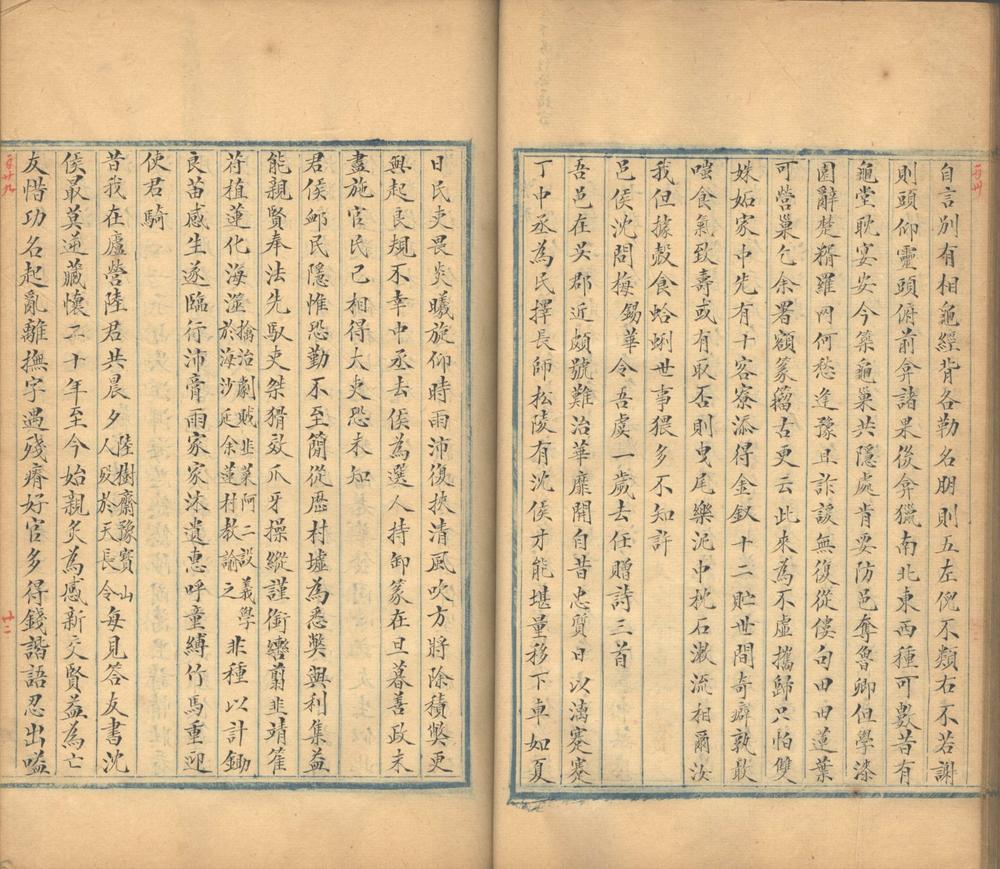 自言別有相龜經背各勒名朋則五左倪不類右不若謝
則頭仰靈頭俯前弇諸果後弇獵南北東西種可數昔有
龜堂耽宴安今築龜巢共隱處肯要防邑奪魯卿但學漆
園辭楚羅網何愁逢豫且詐諼無復從僂句田田蓮葉
可營巢乞余署額篆籀古更云此來為不虛攜歸只怕雙
姝妬家中先有十客寮添得金釵十二貯世間奇癖孰敢
嗤食氣致壽或有取否則曳尾樂泥中枕石漱流相爾汝
我但據殼食蛤蜊世事猥多不知許
邑侯沈問梅錫華令吾虞一歲去任贈詩三首
吾邑在吳郡近頗號難治華靡開自昔忠質日以漓蹇蹇
丁中丞為民擇長師松陵有沈侯才能堪量移下車如夏
日民吏畏炎曦旋仰時雨沛復挾清風吹方將除積獘更
興起良規不幸中丞去侯為選人持卸篆在旦暮善政未
盡施官民已相得大吏恐未知
君侯鄉民隱惟恐勤不至簡從歷村墟為悉獘與利集益
能親賢奉法先馭吏桀猾效爪牙操縱謹銜轡翦韭靖萑
苻植蓮化海澨擒治劇賊韭菜阿二設義學
於海沙延余蓮村教諭之非種以計鋤
良苗感生遂臨行沛膏雨家家沐遺惠呼童縛竹馬重迎
使君騎
昔我在廬營陸君共晨夕陸樹齋豫寶山
人歿於天長令每見答友書沈
侯最莫逆藏懷二十年至今始親炙為感新交賢益為亡
友惜功名起亂離撫字遇殘瘠好官多得錢諧語忍出嗌